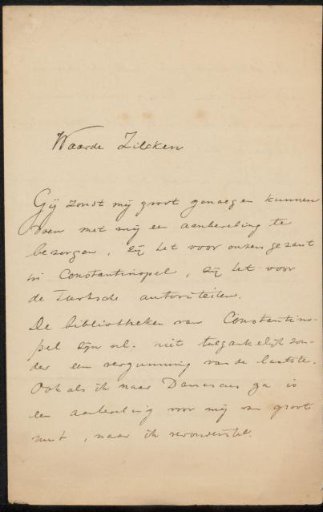 Waarde Zilcken
Gij zoudt mij groot genoegen kunnen
doen met mij een aanbeveling te
bezorgen, zij het voor onzen gezant
in Constantinopel, zij het voor
de Turksche autoriteiten.
De bibliotheken van Constantino-
pel zijn nl. niet toegankelijk zon-
der een vergunning van de laatste.
Ook als ik naar Damascus ga is
een aanbeveling voor mij van groot
nut, naar ik veronderstel.